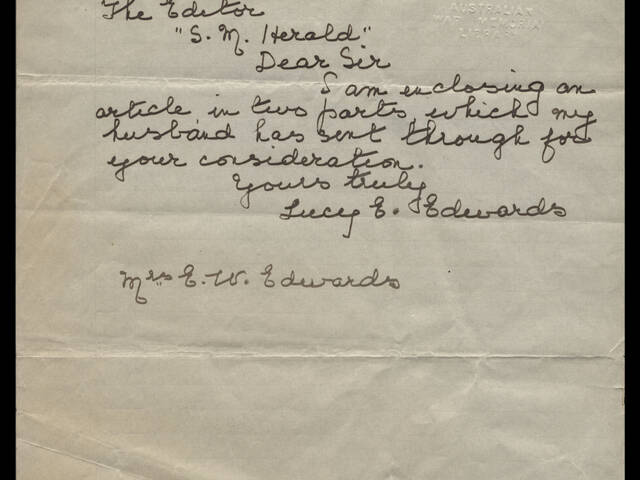 The Editor
AUSTRALIAN
WAR MEMORIAL
LIBRARY
"S. M. Herald"
Dear Sir
I am enclosing an
article in two parts, which my
husband has sent through for
your consideration.
Yours truly
Lucy E. Edwards
Mrs E. W. Edwards